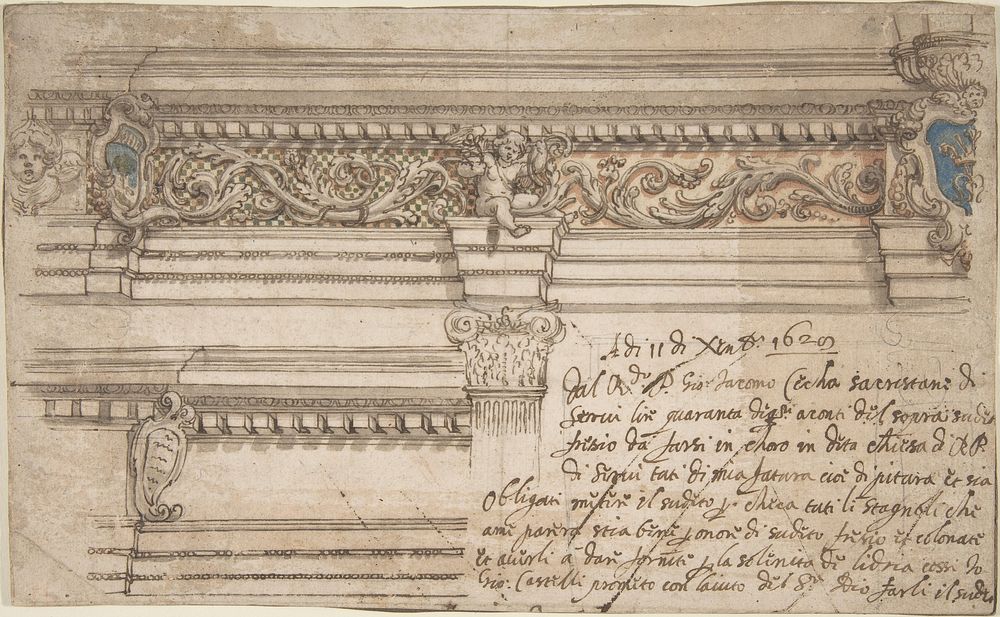 A di 11 di Xm̄br. 1629
Dal R.do P. Gio: Jacomo Cecha sacristane di
Servi lire quaranta di qsi aconti del sopra sudeto
fresio da farsi in choro in dita chiesa di R.P.
di Servi tuti di mia fatura cioe di pitura et sia
Obligati meture il sudeto p. checa tuti li stagnoli che
ame parera stia bene p onore di sudeto fresio et colonate
et averli a dare forniti p la solenita di
Gio: Castelli prometo con laiuto del S.r Dio farli il sudeto